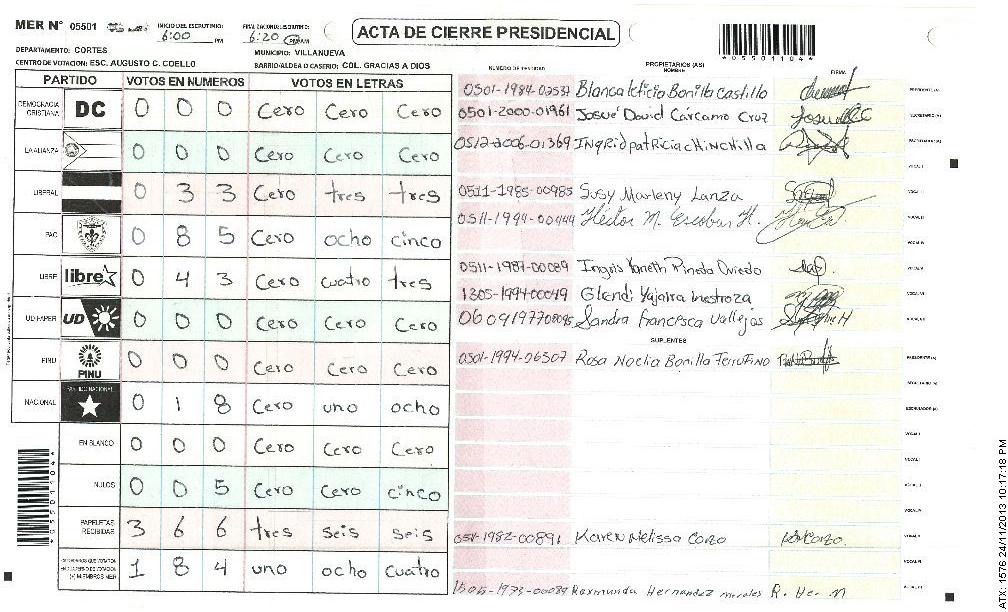 MER N° 05501 INICIO DEL ESCRUTINIO: 6:00 PM FINALIZACION ESCRUTINIO: 6:20 PM
ACTA DE CIERRE PRESIDENCIAL
*05501104*
DEPARTAMENTO: CORTES MUNICIPIO: VILLANUEVA
CENTRO DE VOTACION: ESC. AUGUSTO C. COELLO BARRIO/ALDEA O CASERIO: COL. GRACIAS A DIOS
PARTIDO VOTOS EN NUMEROS VOTOS EN LETRAS
DEMOCRACIA CRISTIANA DC 0 0 0 Cero Cero Cero
LA ALIANZA 0 0 0 Cero Cero Cero
LIBERAL 0 3 3 Cero tres tres
PAC 0 8 5 Cero ocho cinco
LIBRE libre 0 4 3 Cero cuatro tres
UD-FAPER UD 0 0 0 Cero Cero Cero
PINU PINU 0 0 0 Cero Cero Cero
NACIONAL PARTIDO NACIONAL 0 1 8 Cero uno ocho
EN BLANCO 0 0 0 Cero Cero Cero
NULOS 0 0 5 Cero Cero cinco
PAPELETAS RECIBIDAS 3 6 6 tres seis seis
(+) MIEMBROS MER 1 8 4 uno ocho cuatro
NUMERO DE IDENTIDAD PROPIETARIOS (AS) NOMBRE FIRMA
0501-1984-03537 Blanca leticia Bonilla Castillo PRESIDENTE (A)
0501-2000-01961 Josué David Cárcamo Cruz SECRETARIO (A)
0512-2006-01369 INgRid patRiciacHiNcHilla ESCRUTADOR (A)
VOCAL I
0511-1985-00985 Susy Marleny Lanza VOCAL II
0511-1994-00444 Héctor M. Escobar H. VOCAL III
VOCAL IV
0511-1987-00089 Ingris Yaneth Pineda Oviedo VOCAL V
1305-1994-00049 Glendi Yajaira Inestroza VOCAL VI
0609197700095 Sandra Francesca Vallejos VOCAL VII
SUPLENTES
0501-1994-06507 Rosa Noelia Bonilla Ferrufino PRESIDENTE (A)
SECRETARIO (A)
ESCRUTADOR (A)
VOCAL I
VOCAL II
VOCAL III
VOCAL IV
0511-1982-00891 Karen Melissa VOCAL V
VOCAL VI
1505-1973-00089 Raymunda Hernandez morales VOCAL VII
*05501104*
ATX: 1576 24/11/2013 10:17:18 PM